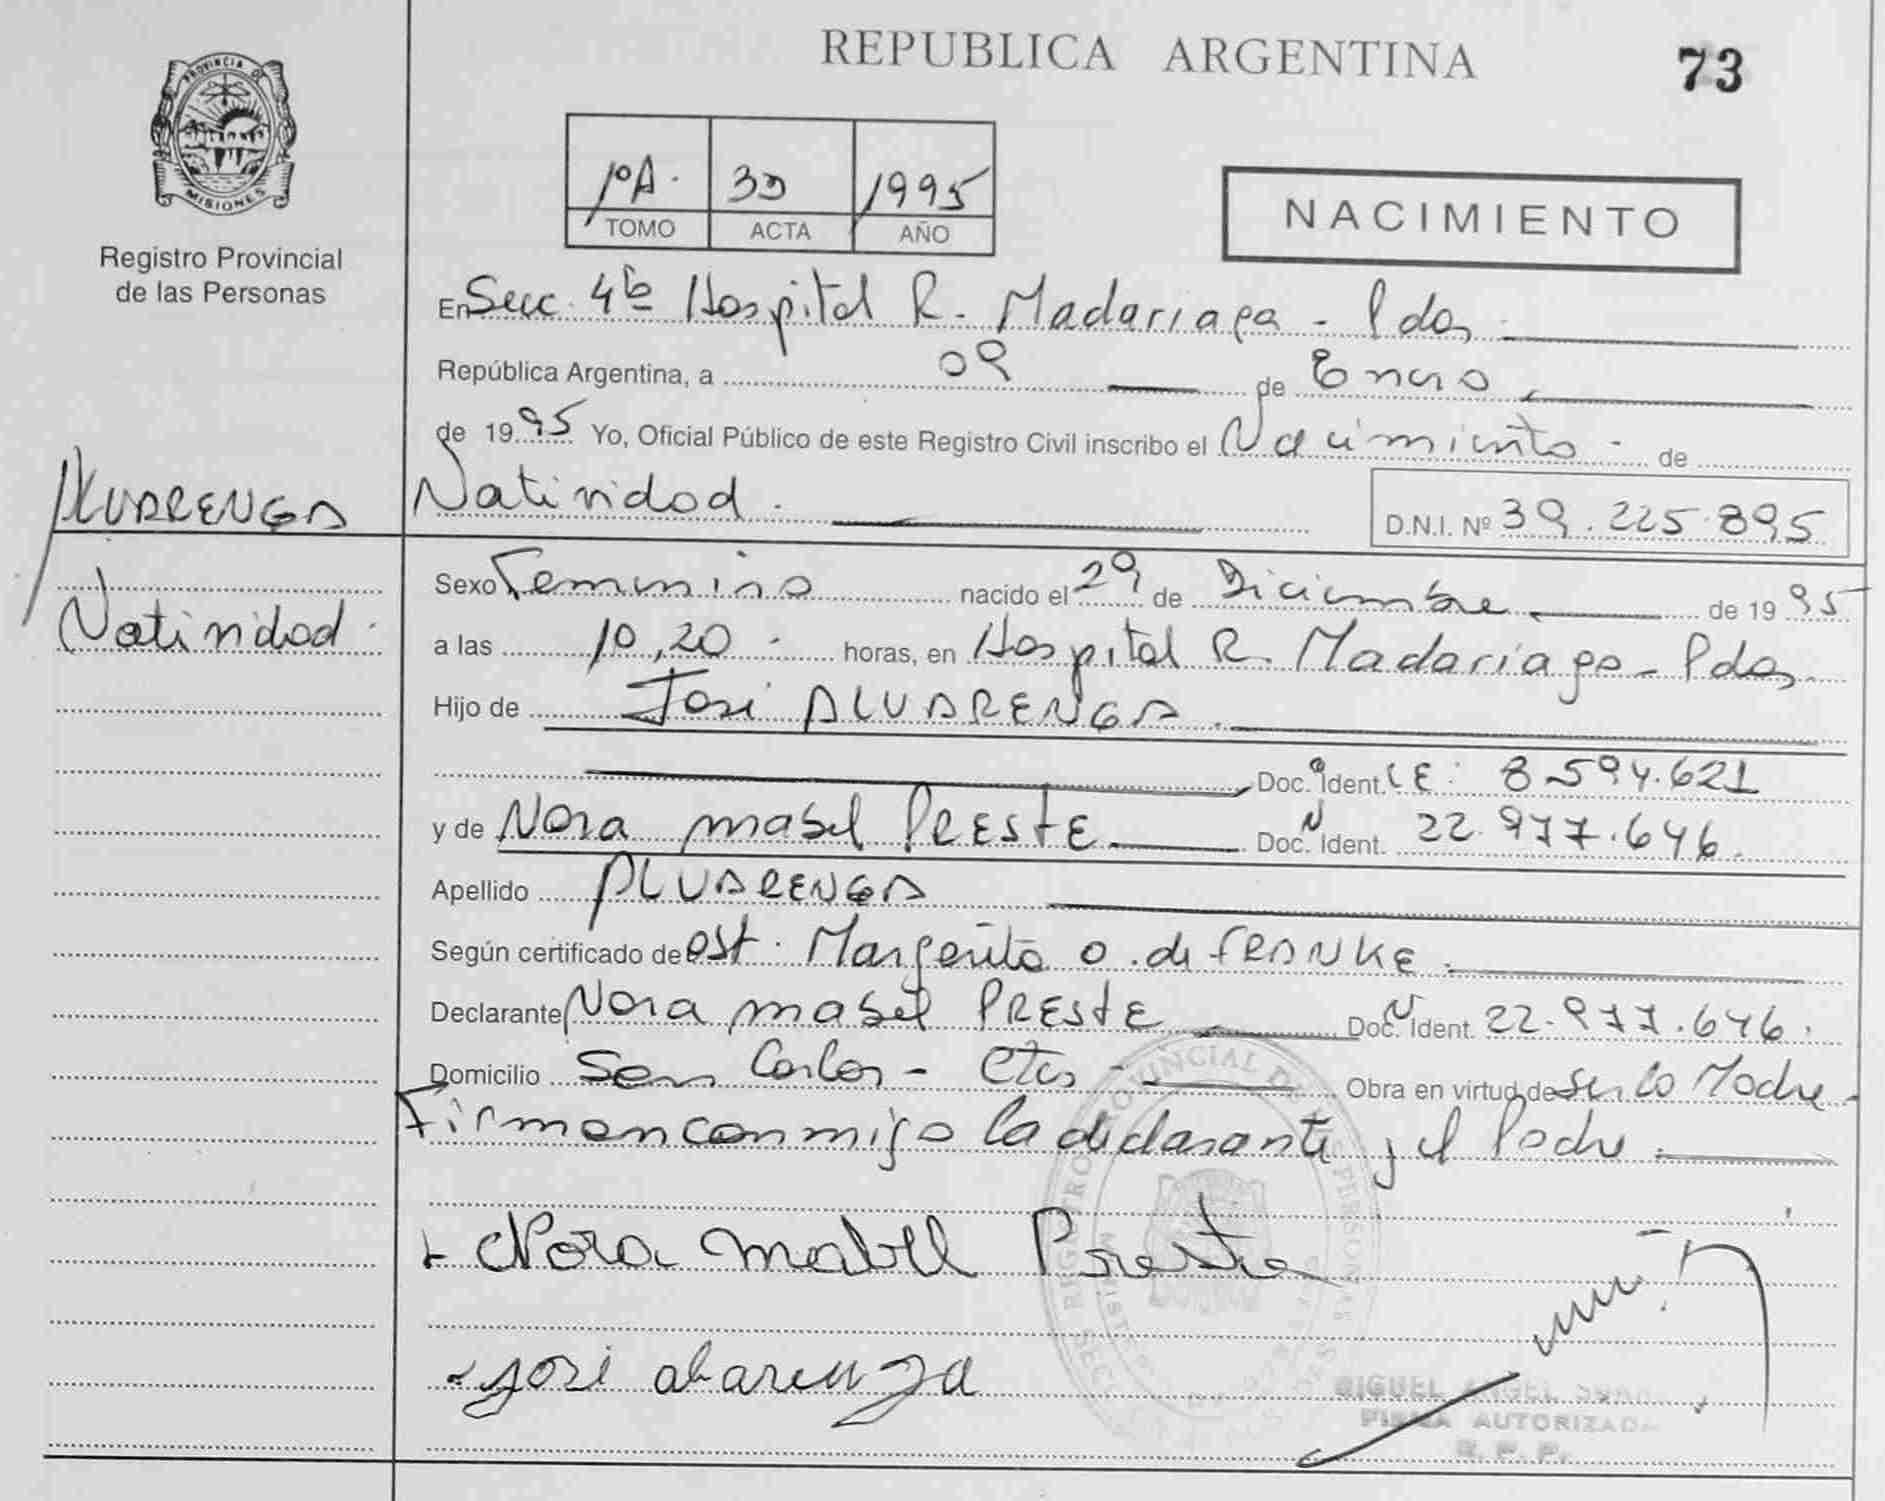 REPUBLICA ARGENTINA
73
PROVINCIA DE MISIONES
Registro Provincial
de las Personas
1ºA. 39 1995
TOMO ACTA AÑO
NACIMIENTO
En Secc. 4ta Hospital R. Madariaga - Pdas
República Argentina, a 09 de Enero
de 1995 Yo, Oficial Público de este Registro Civil inscribo el Nacimiento - de
Natividad. D.N.I. Nº 39.225.895
ALVARENGA
Natividad.
Sexo Femenino nacido el 29 de Diciembre de 1995
a las 10,20 - horas, en Hospital R. Madariaga - Pdas
Hijo de José ALVARENGA.
Doc. Ident. LE: 8.594.621
y de Nora mabel PRESTE Doc. Ident. 22.977.646.
Apellido ALVARENGA
Según certificado de est. Margarita O. de FRANKE.
Declarante Nora mabel PRESTE Doc. Ident. 22.977.646.
Domicilio San Carlos - Ctes - Obra en virtud de ser la Madre -
Firman conmigo la declarante y el Padre.
Nora Mabel Preste
José alvarenga
MIGUEL ANGEL
FIRMA AUTORIZADA
R. P. P.